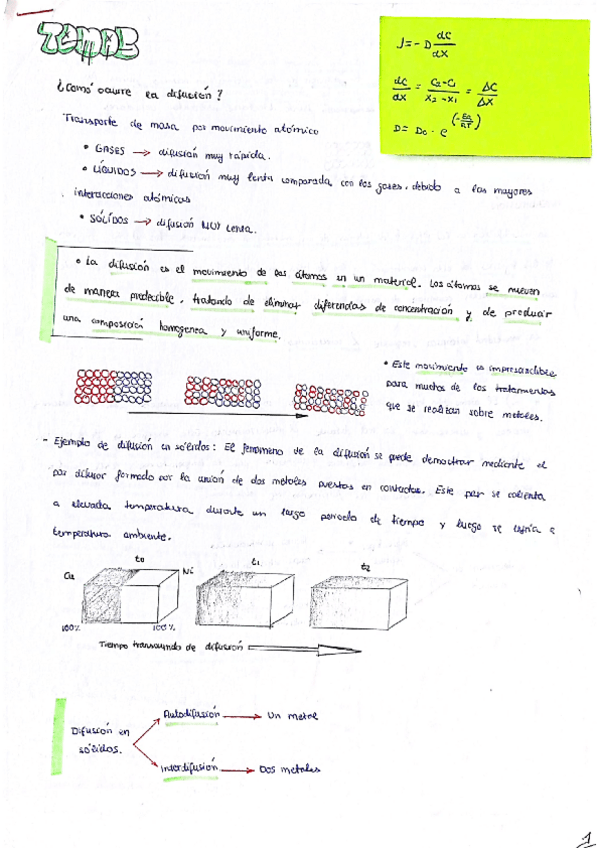 TEMA 5
J = - D dC/dX
dC/dX = C2 - C1 / X2 - X1 = ΔC/ΔX
D = D0 · e^(-Ea/RT)
¿Cómo ocurre la difusión?
Transporte de masa por movimiento atómico
• GASES → difusión muy rápida.
• LÍQUIDOS → difusión muy lenta comparada con los gases, debido a las mayores
interacciones atómicas
• SÓLIDOS → difusión MUY lenta.
• La difusión es el movimiento de los átomos en un material. Los átomos se mueven
de manera predecible, tratando de eliminar diferencias de concentración y de producir
una composición homogenea y uniforme.
• Este movimiento es imprescindible
para muchos de los tratamientos
que se realizan sobre metales.
- Ejemplo de difusión en sólidos: El fenomeno de la difusión se puede demostrar mediante el
par difusor formado por la unión de dos metales puestos en contacto. Este par se calienta
a elevada temperatura durante un largo periodo de tiempo y luego se enfría a
temperatura ambiente.
t0 t1 t2
Cu Ni
100% 100%
Tiempo transcurrido de difusión
Autodifusión → Un metal
Difusión en
sólidos.
Interdifusión → Dos metales
1